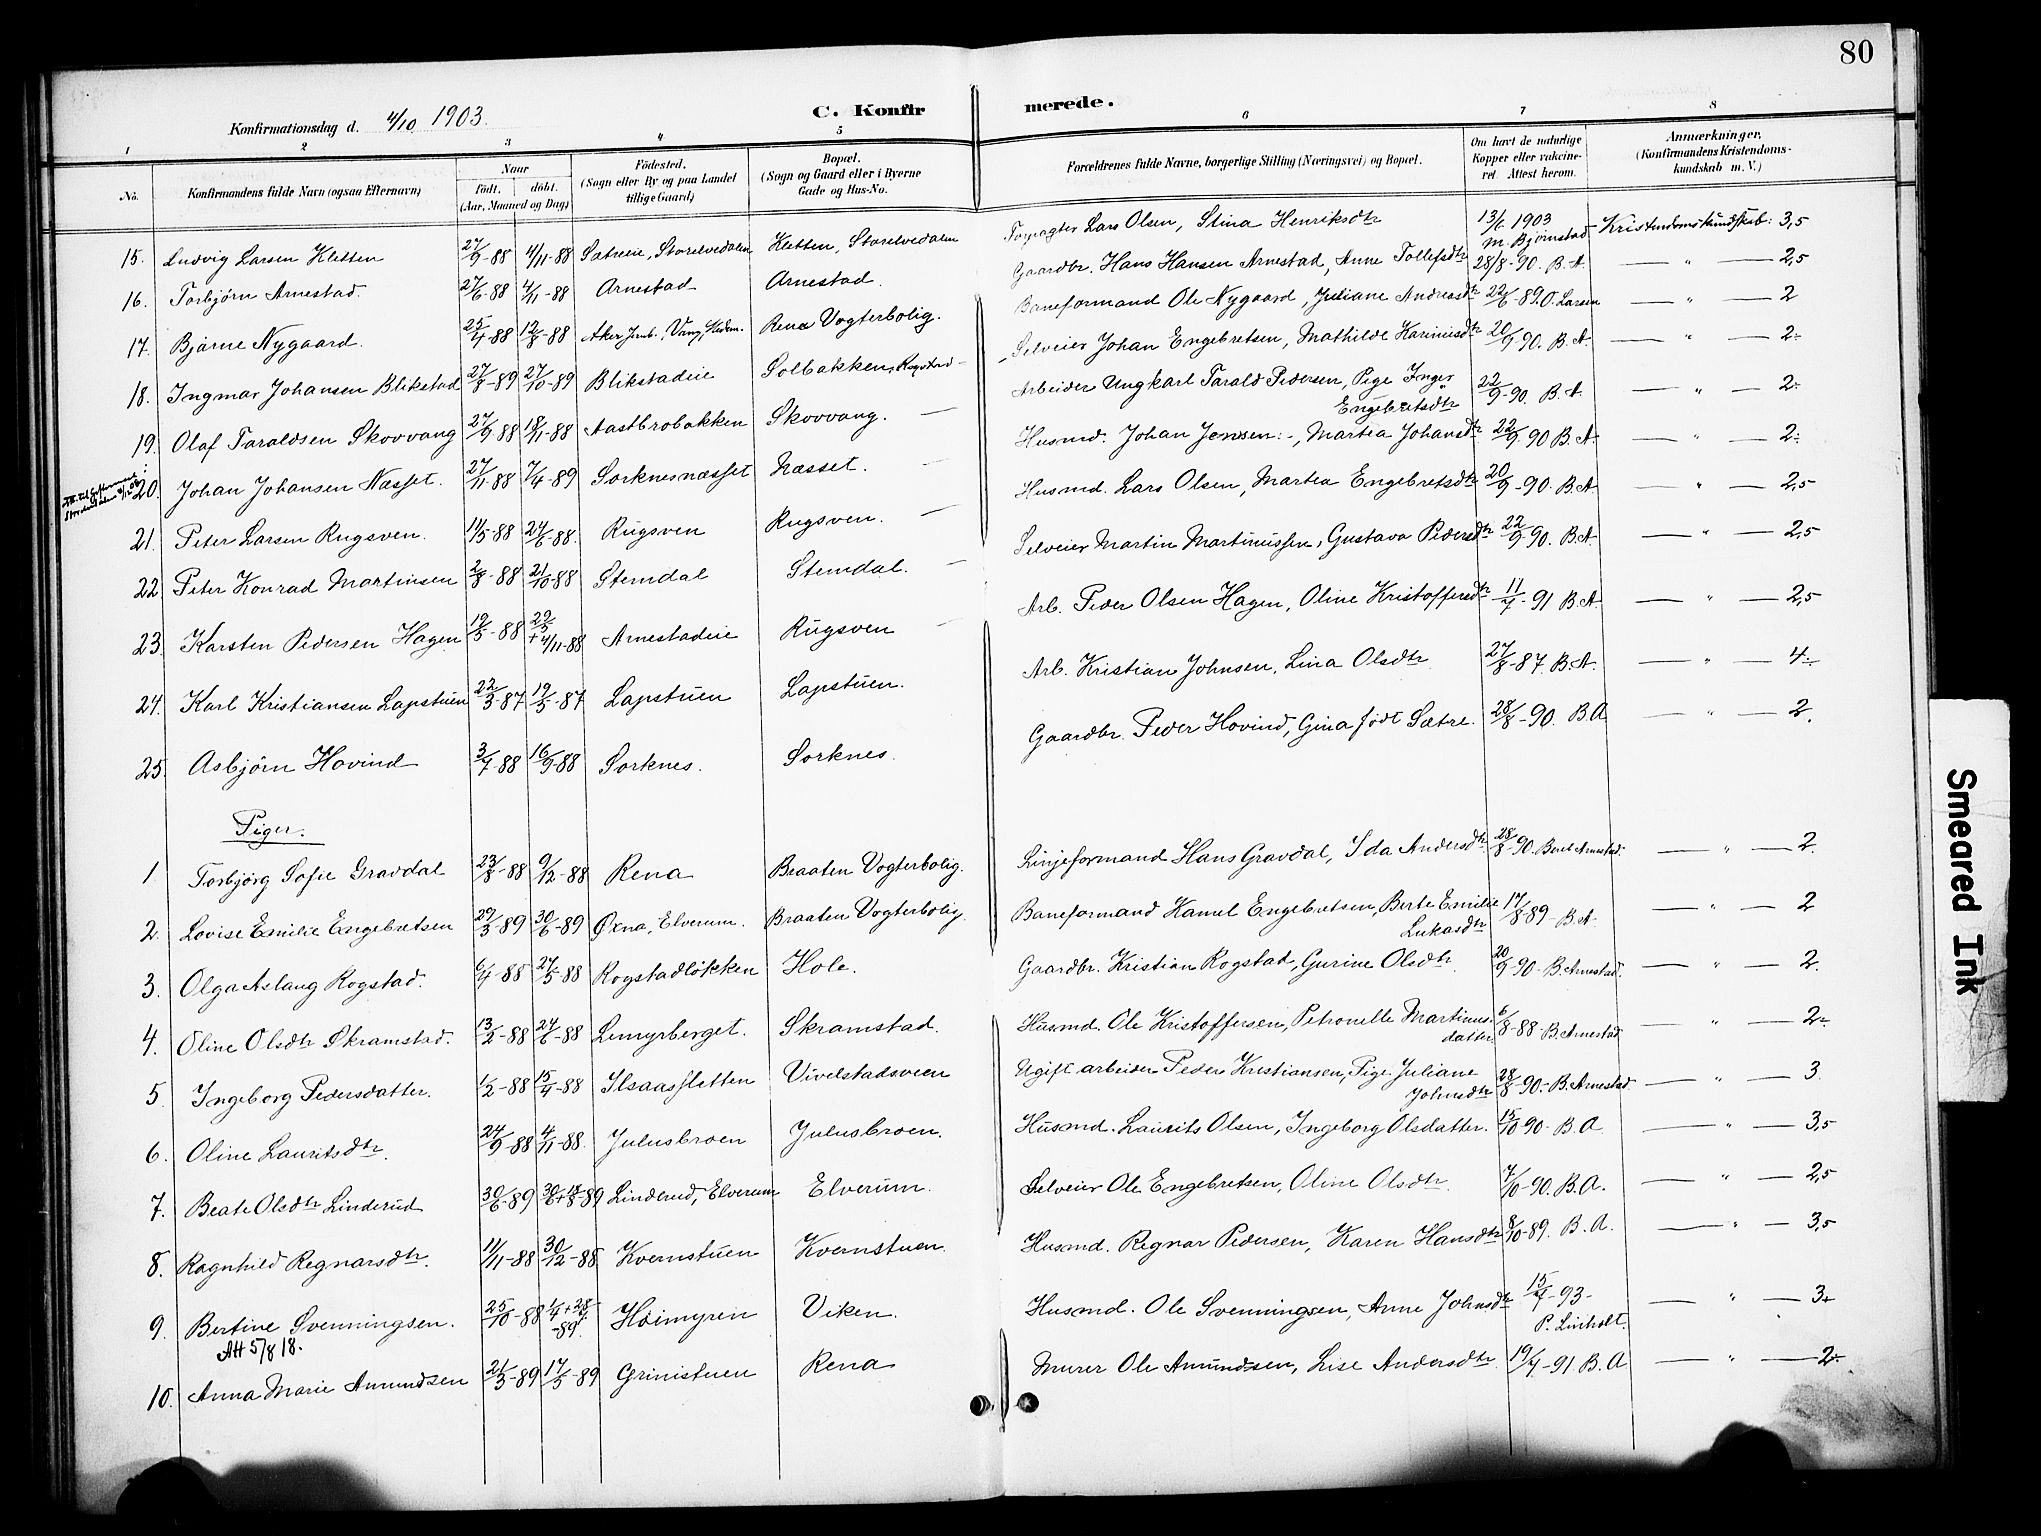 80
Konfirmationsdag d. 4/10 1903.
C. Konfirmerede.
1 2 3 4 5 6 7 8
No.
Konfirmandens fulde Navn (ogsaa Efternavn)
Naar
födt. döbt.
(Aar, Maaned og Dag)
Födested.
(Sogn eller By og paa Landet
tillige Gaard)
Bopæl.
(Sogn og Gaard eller i Byerne
Gade og Hus-No.
Forældrenes fulde Navne, borgerlige Stilling (Næringsvei) og Bopæl.
Om havt de naturlige
Kopper eller vakcine-
ret. Attest herom.
Anmærkninger,
(Konfirmandens Kristendoms-
kundskab m. V.)
15. Ludvig Larsen Kletten 27/9-88 4/11-88 Sætreie, Storelvedalen Kletten, Storelvedalen Forpagter Lars Olsen, Stina Henriksdtr 13/6 1903 M. Bjørnstad Kristendomskundskab: 3,5
16. Torbjörn Arnestad. 27/6-88 4/11-88 Arnestad Arnestad. Gaardbr. Hans Hansen Arnestad, Anne Tollefsdtr 28/8-90. B.A. — " — 2,5
17. Bjarne Nygaard. 25/4-88 12/8-88 Aker Jmb., Vang, Hedm. Rena Vogterbolig. Baneformand Ole Nygaard, Juliane Andreasdtr 22/6-89 O. Larsen — " — 2
18. Ingmar Johansen Blikstad 27/8-89 27/10-89 Blikstadeie Solbakken, Rogstad — Selveier Johan Engebretsen, Mathilde Karinusdtr 20/9-90. B.A. — " — 2-
19. Olaf Taraldsen Skovvang 27/9-88 18/11-88 Aastbrobakken Skovvang. — Arbeider Ungkarl Tarald Pedersen, Pige Inger Engebretsdtr 22/9-90 B.A. — " — 2-
20. Johan Johansen Næsset. 27/11-88 7/4-89 Sorknesnæsset Næsset. — Husmd. Johan Jensen, Martea Johansdtr 22/9-90 B.A. — " — 2-
21. Peter Larsen Rugsven. 11/5-88 24/6-88. Rugsven Rugsven. — Husmd. Lars Olsen, Martea Engebretsdtr 20/9-90. B.A. — " — 2,5
22 Peter Konrad Martinsen 2/8-88 21/10-88 Stemdal Stemdal. — Selveier Martin Martinussen, Gustava Pedersdtr 22/9-90. B.A. — " — 2,5
23. Karsten Pedersen Hagen 19/5-88 + 4/11-88 Arnestadeie Rugsven — Arb. Peder Olsen Hagen, Oline Kristoffersdtr 11/7-91 B.A. — " — 2,5
24. Karl Kristiansen Lapstuen 22/3-87 19/5-87 Lapstuen Lapstuen. Arb. Kristian Johnsen, Lina Olsdtr 27/8-87. B.A. — " — 4-
25. Asbjörn Hovind 3/7-88 16/9-88 Sorknes. Sorknes. Gaardbr. Peder Hovind, Gina født Sætre. 28/8-90. B.A — " — 2.
Piger.
1 Torbjörg Sofie Gravdal 23/8-88 9/12-88 Rena Braaten Vogterbolig. Linjeformand Hans Gravdal, Ida Andersdtr 28/8-90. Bent Arnestad. — " — 2.
2. Lovise Emilie Engebretsen 29/3-89 30/6-89 Øxna, Elverum. Braaten Vogterbolig. Baneformand Hamel Engebretsen, Berte Emilie Lukasdtr 17/8-89- B.A. — " — 2
3. Olga Aslaug Rogstad. 6/4-88 27/5-88 Rogstadløkken Hole. Gaardbr. Kristian Rogstad, Gurine Olsdtr 20/9-90- B. Arnestad. — " — 2.
4. Oline Olsdtr Skramstad. 13/2-88 24/6-88 Lemyrberget. Skramstad. Husmd. Ole Kristoffersen, Petronelle Martinusdatter. 6/8-88- B. Arnestad — " — 2-
5. Ingeborg Pedersdatter. 1/2-88 15/4-88 Ilsaassletten Vivelstadsveen Ugift arbeider Peder Kristiansen, Pige Juliane Johnsdtr 28/8-90.- B. Arnestad. — " — 3
6. Oline Lauritsdtr. 24/9-88 4/11-88. Julusbroen Julusbroen. Husmd. Laurits Olsen, Ingeborg Olsdatter. 15/10-90- B.A — " — 3,5
7. Beate Olsdtr Linderud 30/6-89 Linderud, Elverum Elverum. Selveier Ole Engebretsen, Oline Olsdtr. 7/10-90. B.A. — " — 2,5
8. Ragnhild Regnarsdtr. 11/11-88 30/12-88 Kvernstuen Kvernstuen. Husmd. Regnar Pedersen, Karen Hansdtr 8/10-89. B.A. — " — 3,5
9. Bertine Svenningsen. 25/10-88 1/4+28/7-89. Höimyren Viken. Husmd. Ole Svenningsen, Anne Johnsdtr 15/7-93- P. Linholt. — " — 3+
Att 5/8 18.
10. Anna Marie Amundsen 21/3-89 17/5-89 Grinistuen Rena Murer Ole Amundsen, Lise Andersdtr 19/7-91 B.A — " — 2-
Smeared Ink